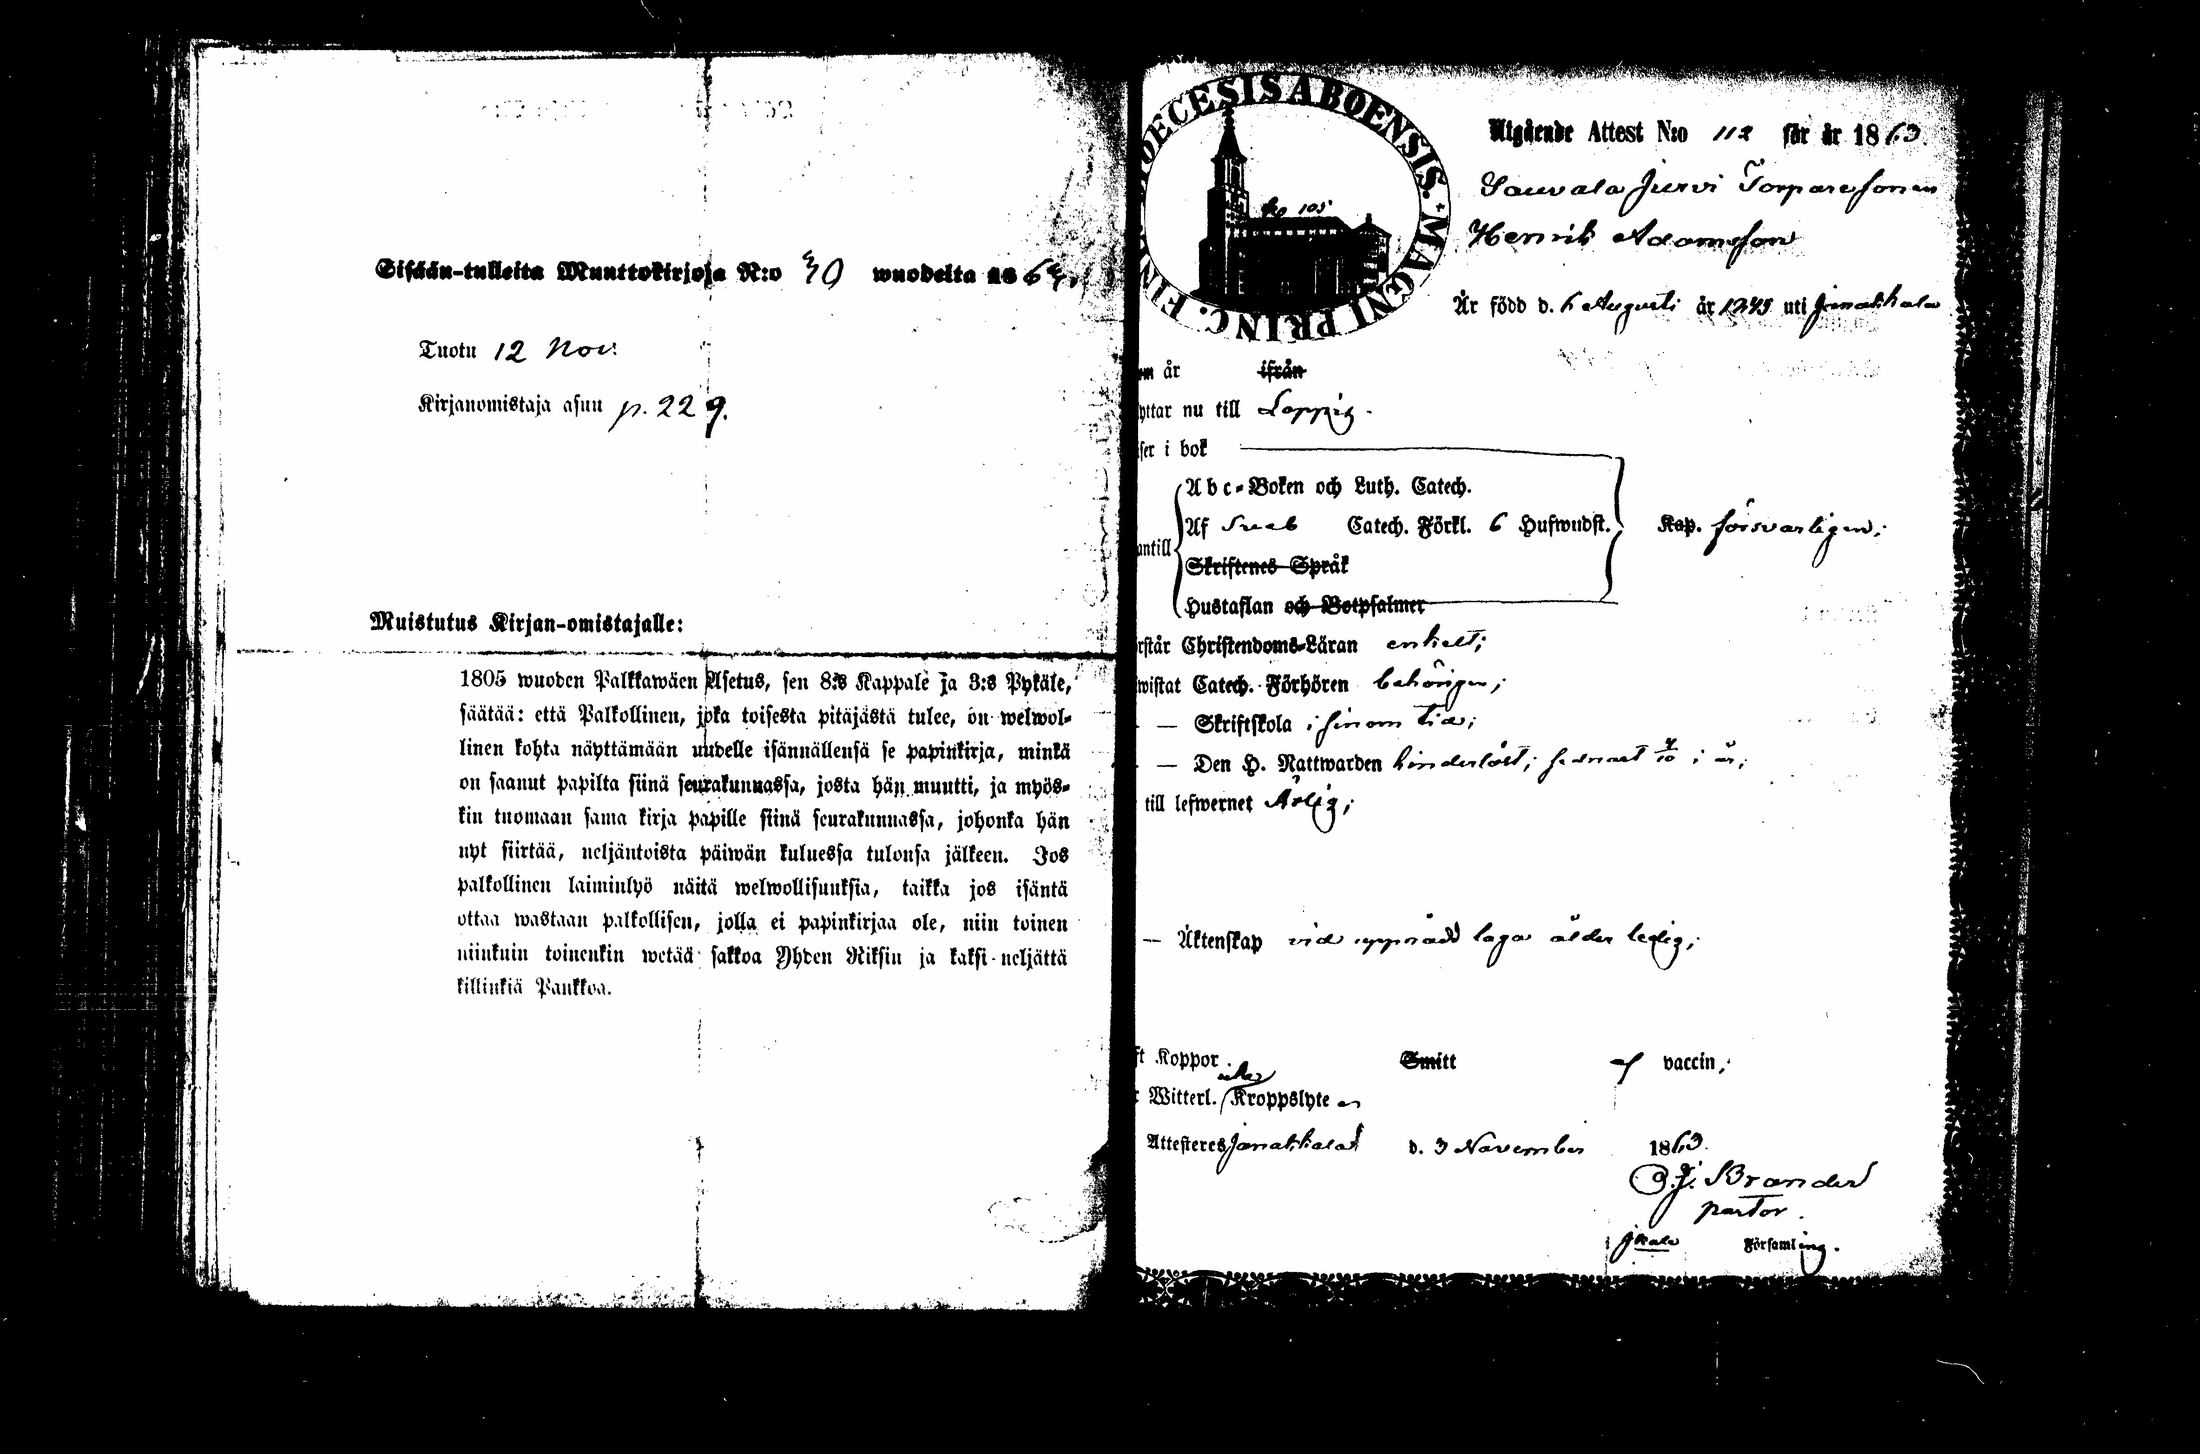 Sisään-tulleita Muuttokirjoja N:o 30 wuodelta 1863.
Tuotu 12 Nov.
Kirjanomistaja asuu p. 229.
Muistutus Kirjan-omistajalle:
1805 wuoden Palkkawäen Asetus, sen 8:s Kappale ja 3:s Pykäle,
säätää: että Palkollinen, joka toisesta pitäjästä tulee, on welwol-
linen kohta näyttämään uudelle isännällensä se papinkirja, minkä
on saanut papilta siinä seurakunnassa, josta hän muutti, ja myös-
kin tuomaan sama kirja papille siinä seurakunnassa, johonka hän
nyt siirtää, neljäntoista päiwän kuluessa tulonsa jälkeen. Jos
palkollinen laiminlyö näitä welwollisuuksia, taikka jos isäntä
ottaa wastaan palkollisen, jolla ei papinkirjaa ole, niin toinen
niinkuin toinenkin wetää sakkoa Yhden Riksin ja kaksi-neljättä
killinkiä Pankkoa.
DIOECESIS ABOENSIS. * MAGNI PRINC. FIN
No 105
Utgående Attest N:o 112 för år 1863.
Sauvala Jurvi Torparesonen
Henrik Adamsson
Är född d. 6 Augusti år 1845 uti Janakkala
om år ifrån
yttar nu till Loppis.
iser i bok
Abc-Boken och Luth. Catech.
Af Sveb Catech. Förkl. 6 Hufwudst. Kap. försvarligen;
antill
Skriftenes Språk
Hustaflan och Botpsalmer
rstår Christendoms-Läran enkelt;
wistat Catech. Förhören behörigen;
— Skriftskola i sinom tid;
— Den H. Nattwarden hinderlöst; sednast 4/10 i år;
till lefwernet Ärlig;
— Äktenskap vid uppnådd laga ålder ledig;
ft Koppor Smitt af vaccin;
r Witterl. icke Kroppslyte
Attesteres Janakkala d. 3 November 1863.
Brander
pastor.
Jkala Församling.